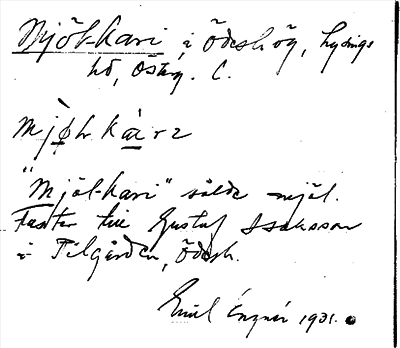 Mjöl-Kari, i Ödeshög, Lysings
hd, Östg. C.
"Mjöl-Kari" sålde mjöl.
Faster till Gustaf Isaksson
i Pilgården, Ödesh.
Emil 1931.